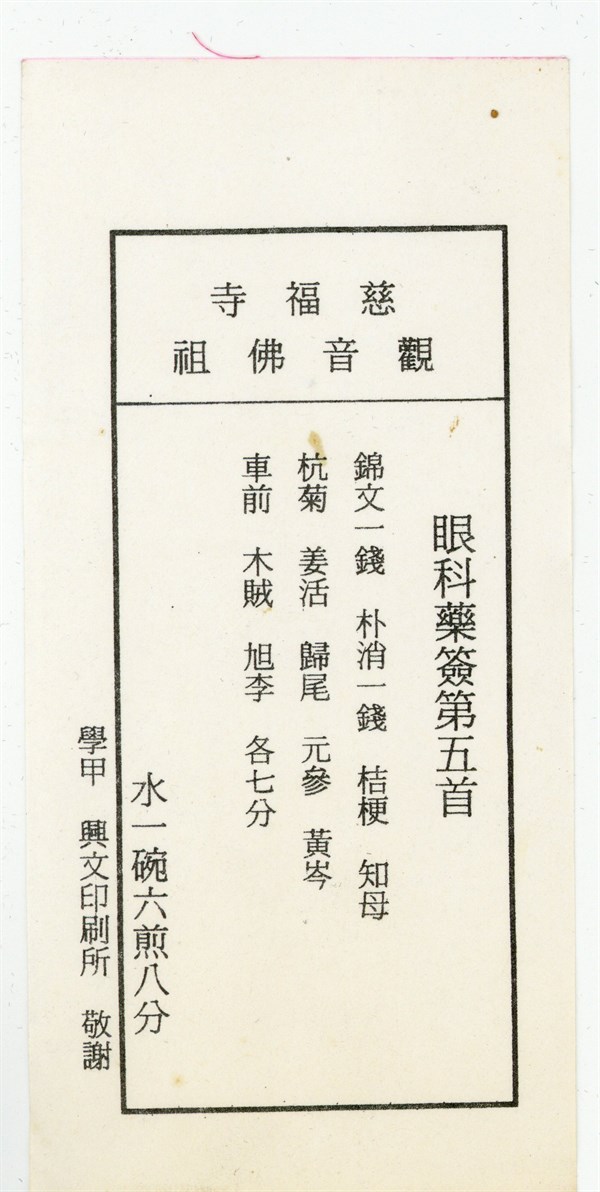 慈福寺
觀音佛祖
眼科藥簽第五首
錦文一錢 朴消一錢 桔梗 知母
杭菊 姜活 歸尾 元參 黃岑
車前 木賊 旭李 各七分
水一碗六煎八分
學甲 興文印刷所 敬謝